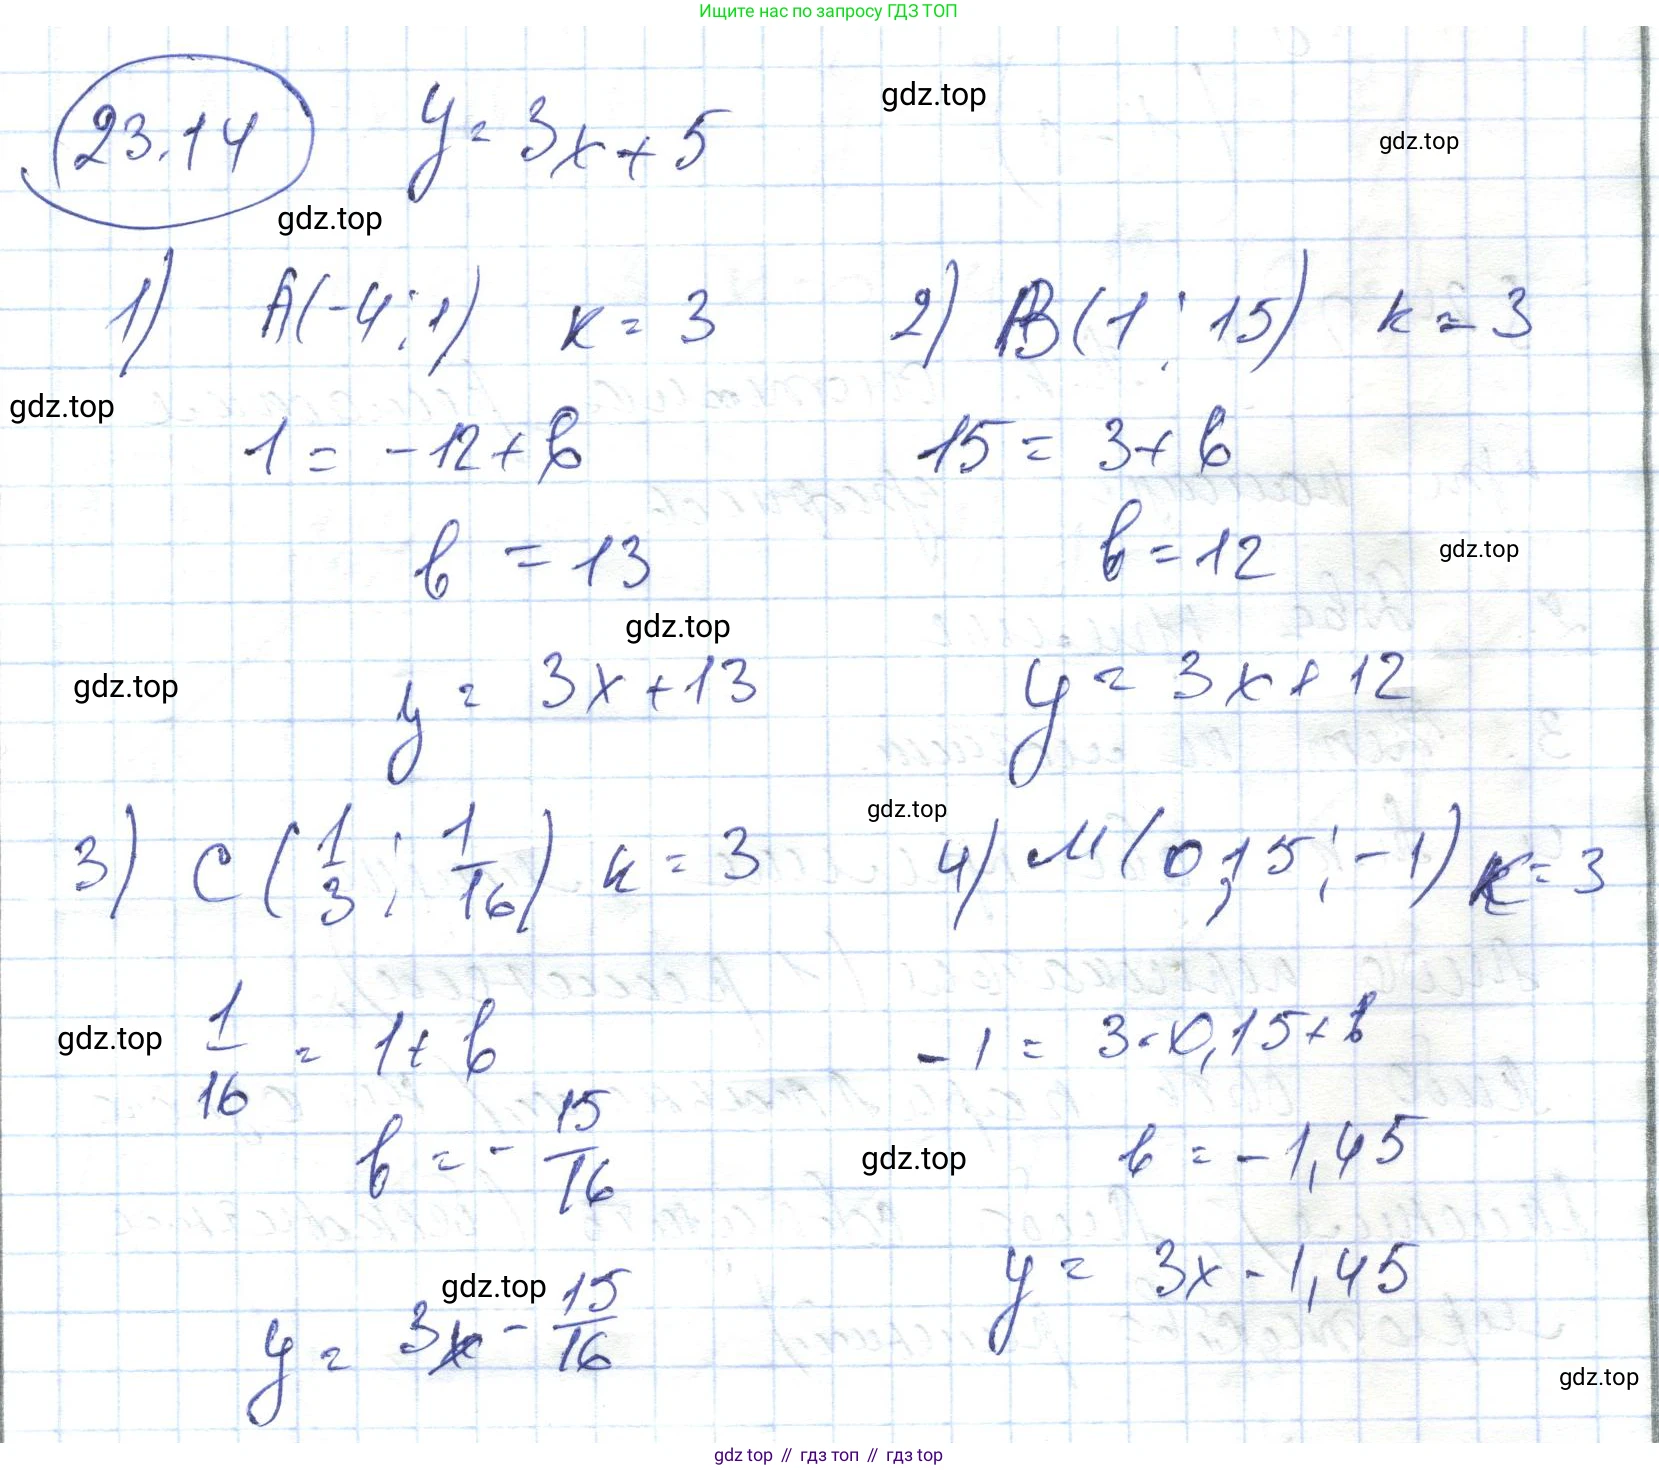 Ищите нас по запросу ГДЗ ТОП
23.14 y = 3x + 5
gdz.top
gdz.top
gdz.top
1) A(-4; 1) k = 3
2) B(1; 15) k = 3
gdz.top
1 = -12 + b
15 = 3 + b
b = 13
b = 12
gdz.top
gdz.top
gdz.top
y = 3x + 13
y = 3x + 12
gdz.top
3) C(1/3; 1/16) k = 3
4) M(0,15; -1) k = 3
gdz.top
1/16 = 1 + b
-1 = 3·0,15 + b
b = -15/16
gdz.top
b = -1,45
gdz.top
y = 3x - 15/16
y = 3x - 1,45
gdz.top
gdz top // гдз топ // гдз top